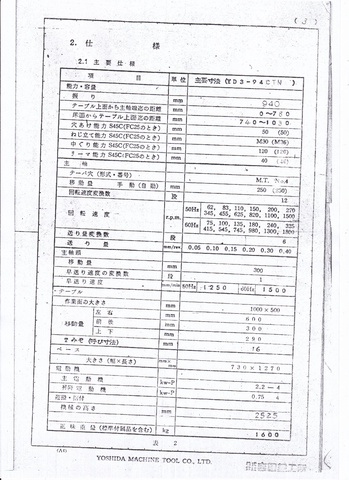 ( 3 )
2. 仕 様
2.1 主 要 仕 様
項 目 単 位 主要寸法 (YD3-94CTN)
能力・容量
振 り mm 940
テーブル上面から主軸端迄の距離 mm 0～780
床面からテーブル上面迄の距離 mm
穴あけ能力 S45C(FC25のとき) mm 50 (50)
ねじ立て能力 S45C(FC25のとき) mm M30 (M36)
中ぐり能力 S45C(FC25のとき) mm 120
リーマ能力 S45C(FC25のとき) mm 40
主 軸
テーパ穴 (形式・番号) M.T. No.4
移動量 手動 (自動) mm 250
回転速度変換数 段 12
回 転 速 度 r.p.m. 50Hz 62, 83, 110, 150, 200, 270
345, 455, 625, 820, 1100, 1500
60Hz 75, 100, 135, 180, 240, 325
415, 545, 745, 980, 1300, 1800
送り量変換数 段 6
送 り 量 mm/rev. 0.05 0.10 0.15 0.20 0.30 0.40
主軸頭
移 動 量 mm 300
早送り速度の変換数 段 1
早送り速度 mm/min 50Hz 1250 60Hz 1500
テーブル
作業面の大きさ mm 1000 × 500
移動量 左 右 mm 600
前 後 mm 300
上 下 mm 290
T みぞ (呼び寸法) mm 16
ベース
大きさ (幅×長さ) mm×mm 730×1270
電 動 機
主 電 動 機 kw-P 2.2-4
昇降電動機 kw-P 0.75 4
電源・据付
機械の高さ mm 2525
正味重量 (標準付属品を含む) kg 1600
表 2
YOSHIDA MACHINE TOOL CO., LTD.